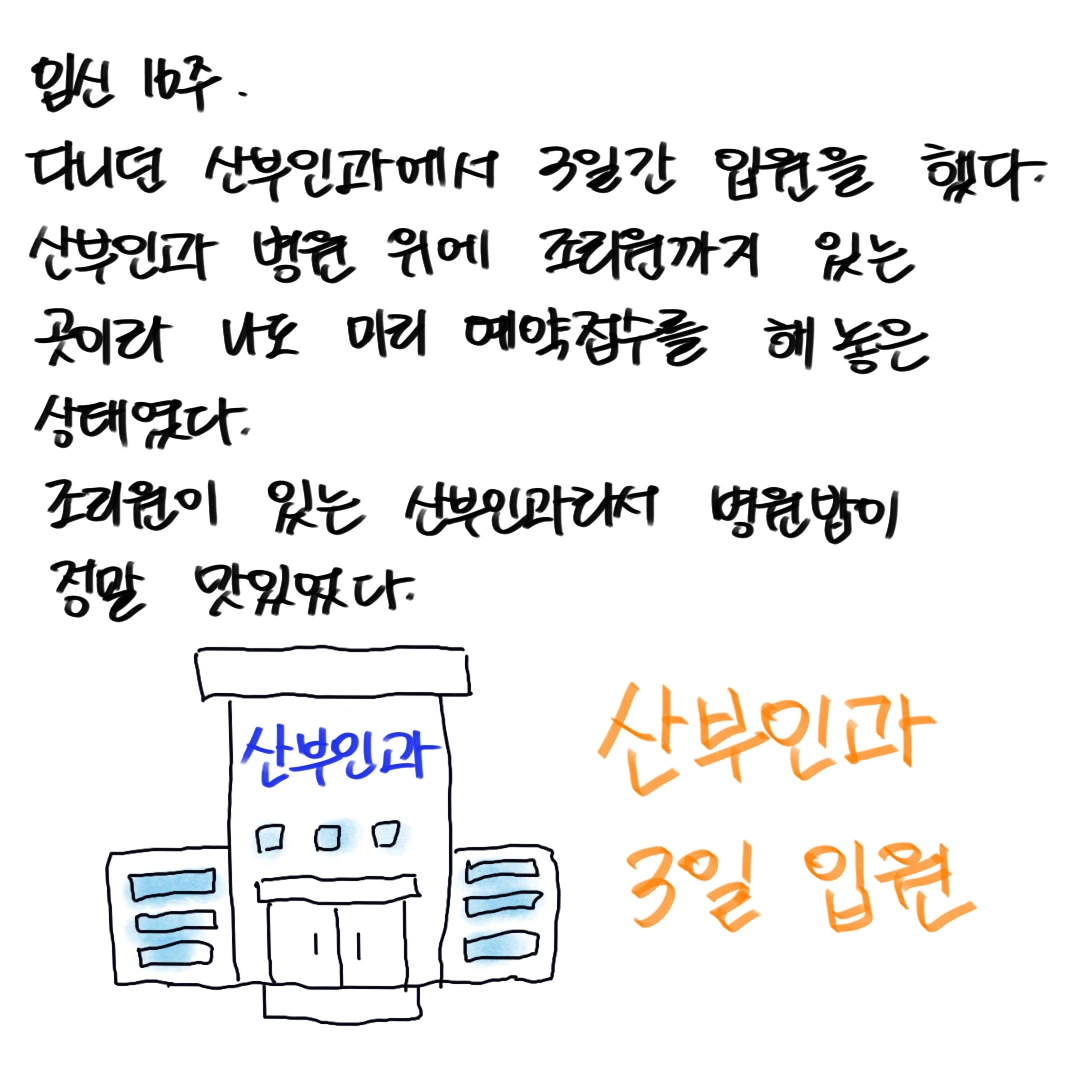 임신 16주.
다니던 산부인과에서 3일간 입원을 했다.
산부인과 병원 위에 조리원까지 있는
곳이라 나도 미리 예약접수를 해 놓은
상태였다.
조리원이 있는 산부인과라서 병원밥이
정말 맛있었다.
산부인과
산부인과
3일 입원